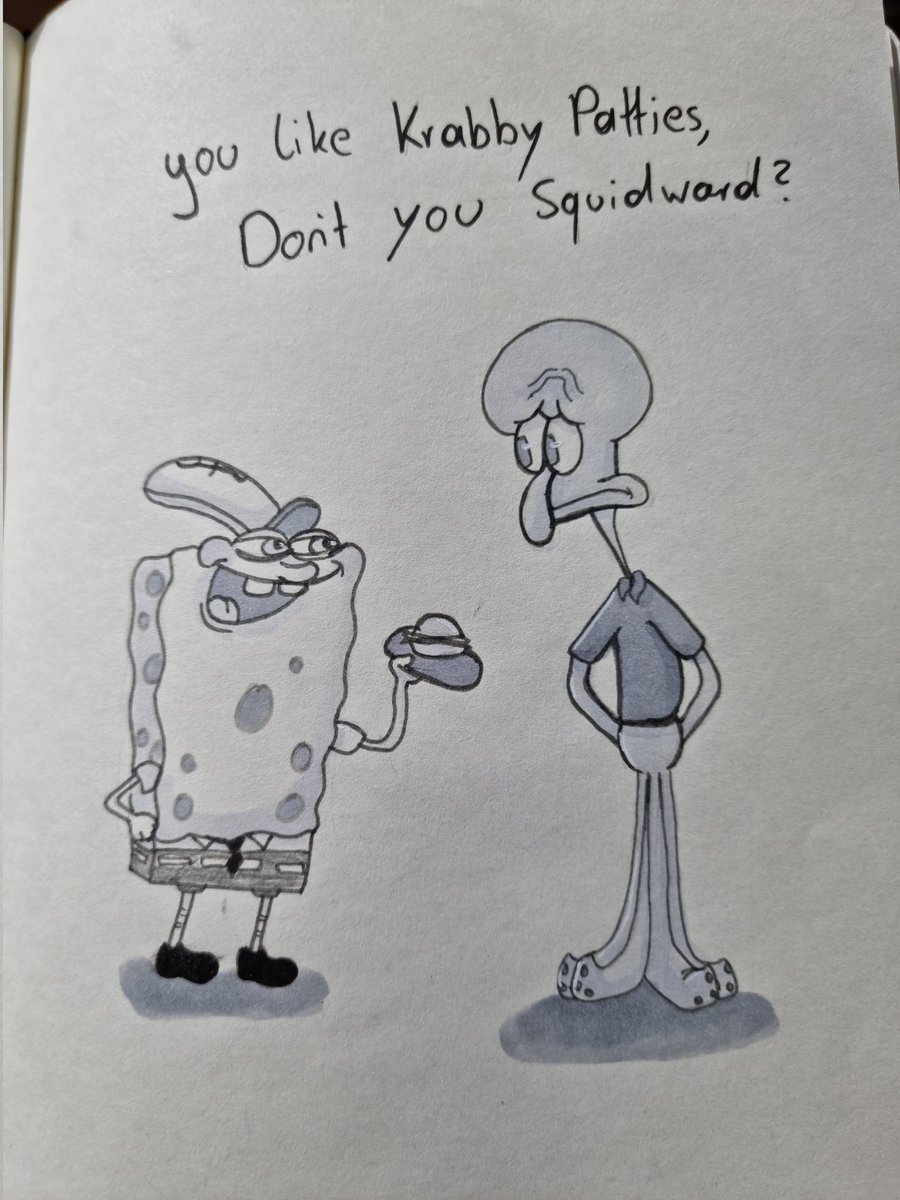 you like Krabby Patties,
Don't you Squidward?